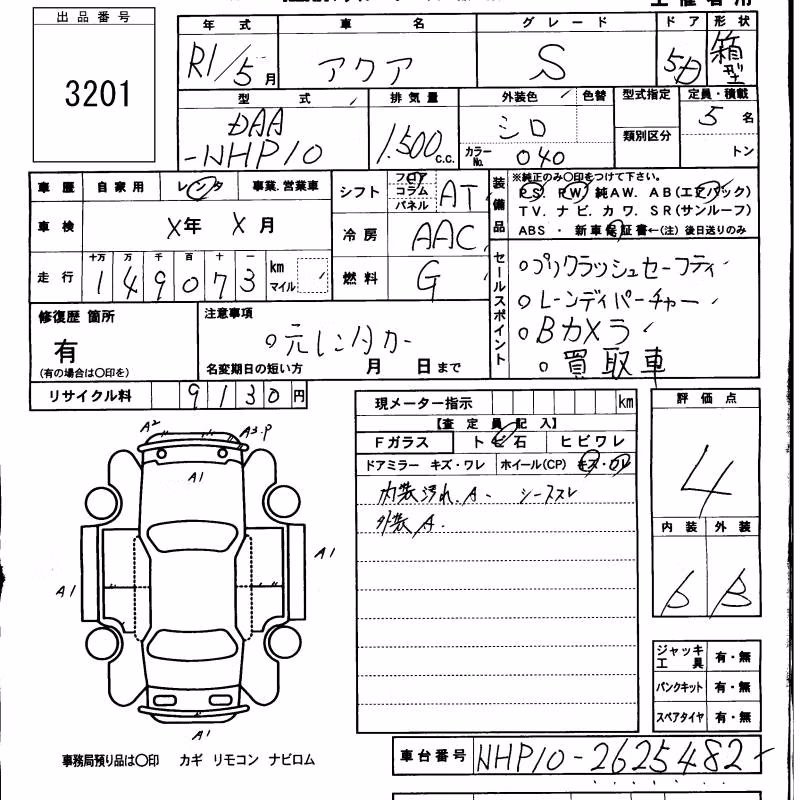 出品番号
3201
年式 車名 グレード ドア 形状
R1/5月 アクア S 5D 箱型
型式 排気量 外装色 色替 型式指定 定員・積載
DAA-NHP10 1.500c.c. シロ カラーNo. 040 類別区分 5名 トン
車歴 自家用 レンタ 事業.営業車
シフト フロア コラム パネル AT
装備品 ※純正のみ○印をつけて下さい。
PS. PW 純AW. AB(エアバック)
TV. ナビ. カワ. SR(サンルーフ)
ABS ・ 新車保証書←(注) 後日送りのみ
車検 X年 X月
冷房 AAC
走行 十万 万 千 百 十 一
149073 km マイル
燃料 G
セールスポイント
○プリクラッシュセーフティ
○レーンディパーチャー
○Bカメラ
○買取車
修復歴 箇所
有
(有の場合は○印を)
注意事項
○元レンタカー
名変期日の短い方 月 日まで
リサイクル料 9130円
現メーター指示 km
【査定員記入】
Fガラス トビ石 ヒビワレ
ドアミラー キズ・ワレ ホイール(CP) キズ・ワレ
内装汚れ.A. シーススレ
外装A.
評価点
4
内装 外装
B
A2 A3.P
A1
A1
A1
A1
ジャッキ工具 有・無
パンクキット 有・無
スペアタイヤ 有・無
事務局預り品は○印 カギ リモコン ナビロム
車台番号 NHP10-2625482